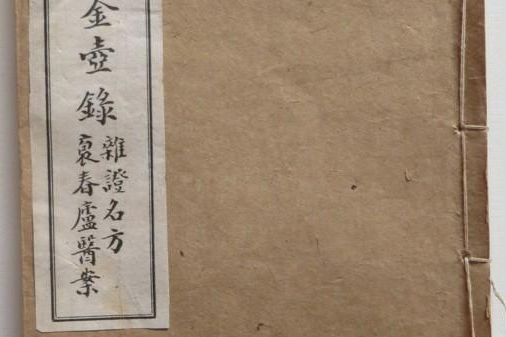 金壺錄
雜證名方
裛春廬醫案